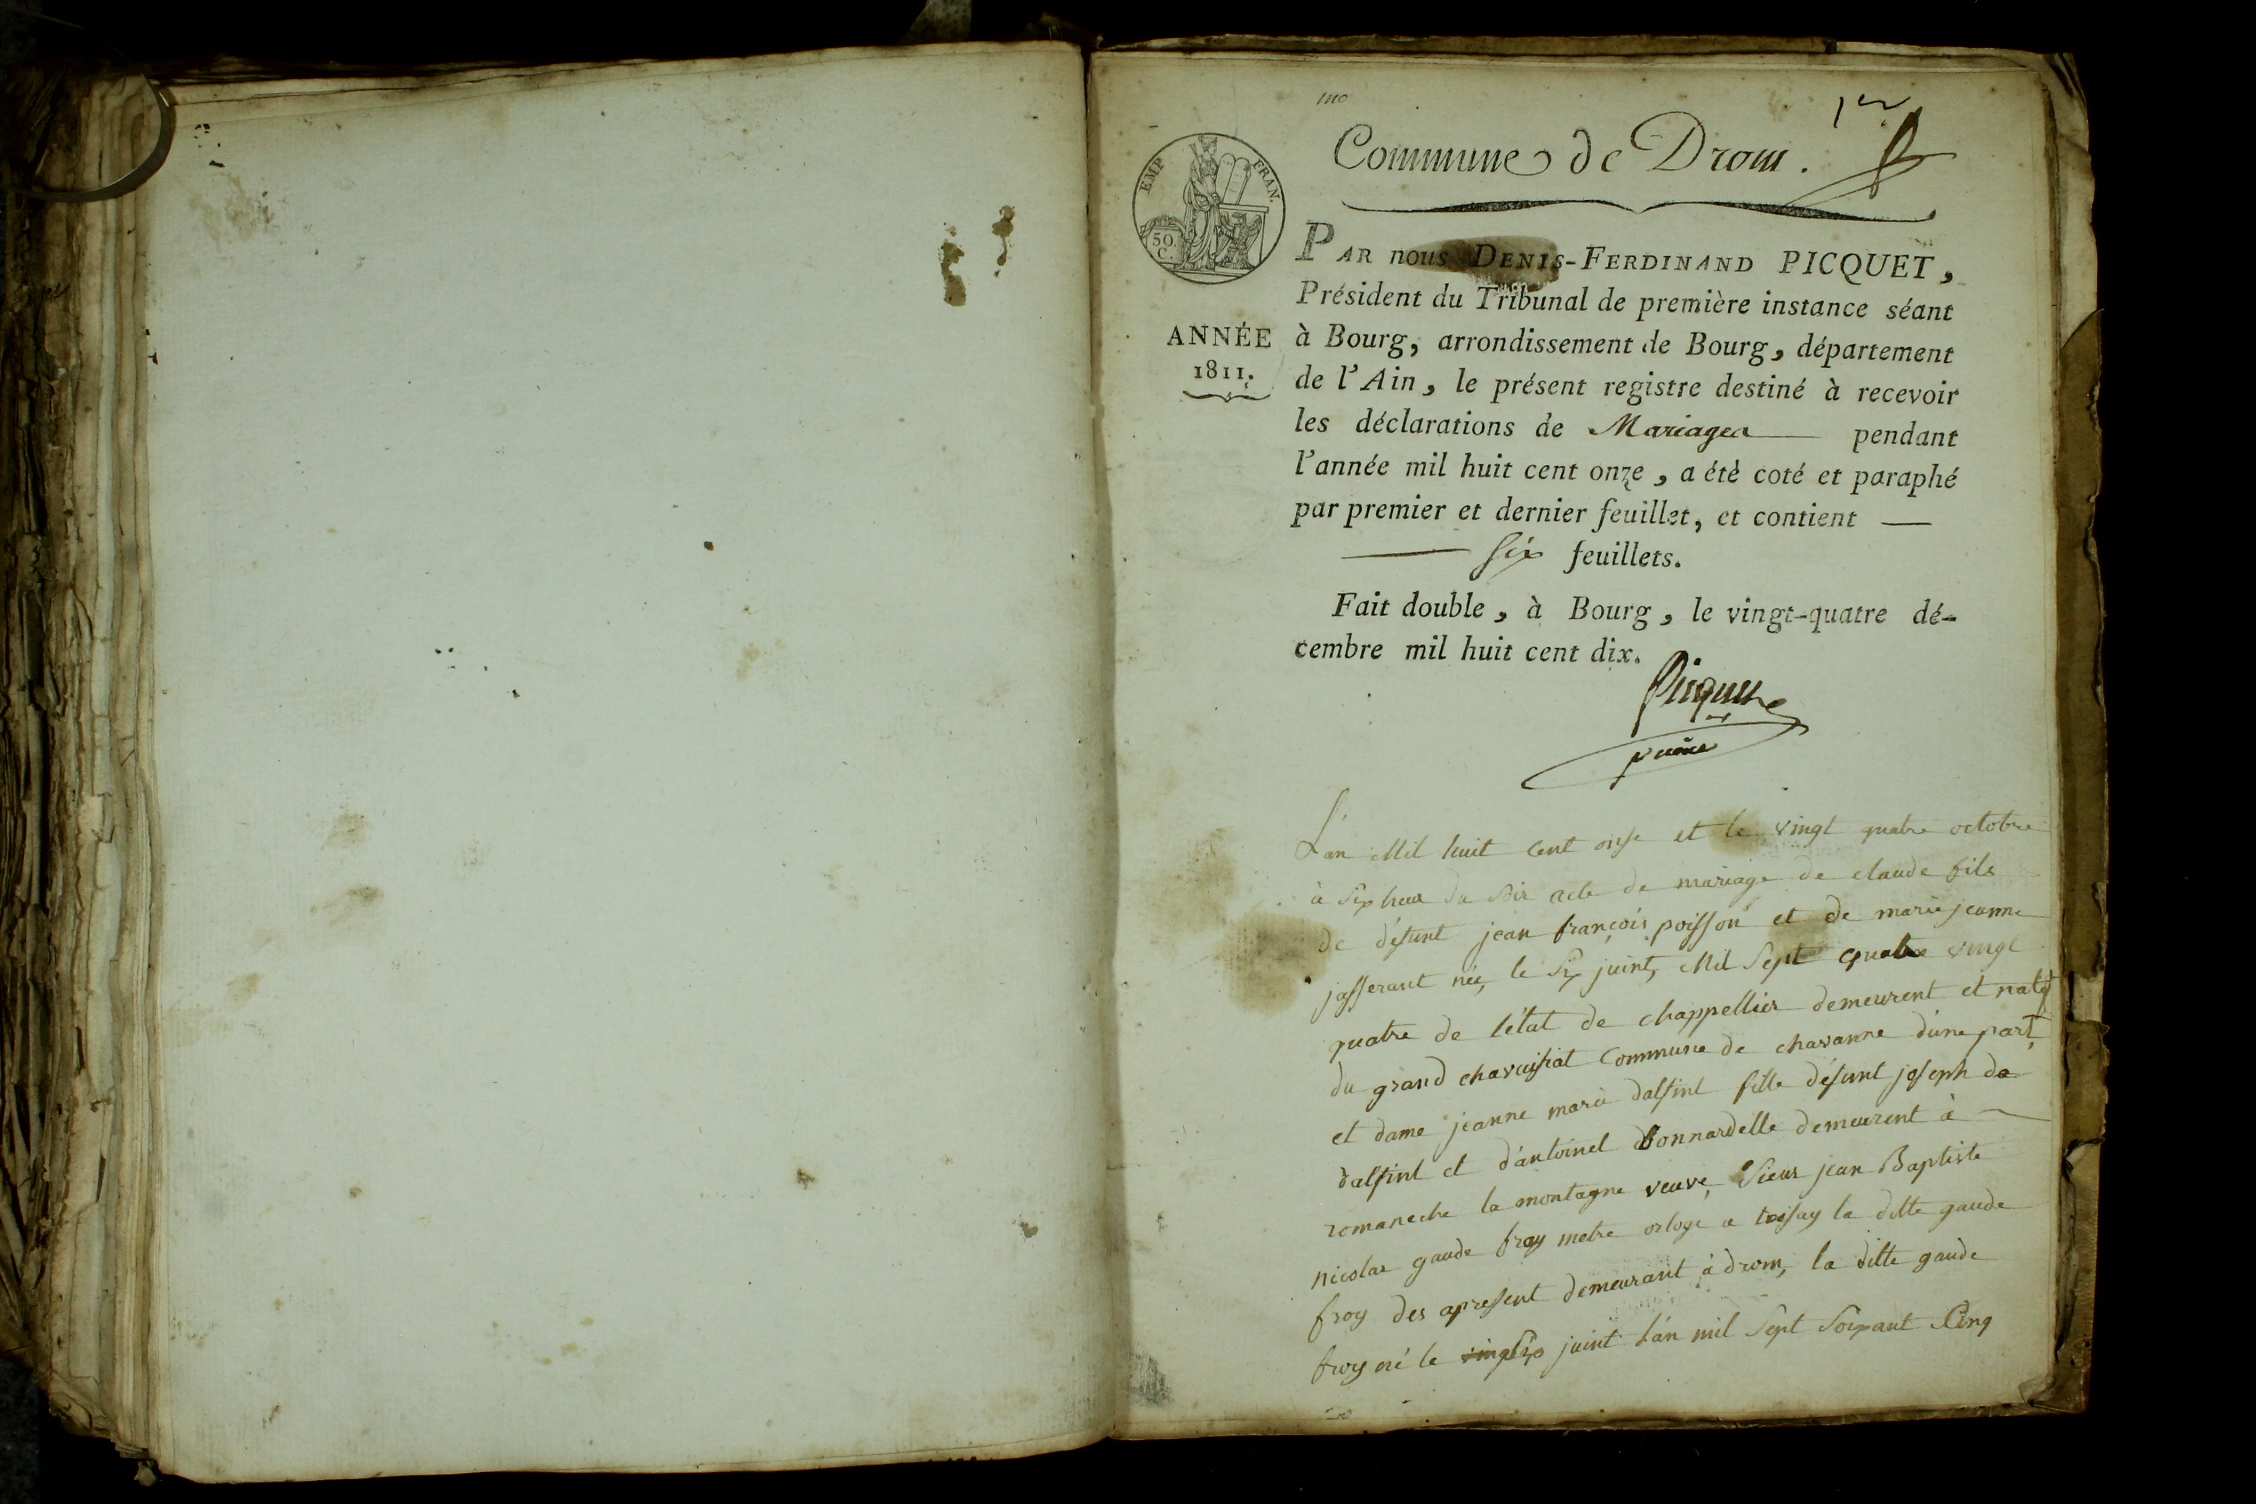 1er
Commune de Drom.
EMP FRAN.
50 C.
ANNÉE
1811.
PAR nous DENIS-FERDINAND PICQUET,
Président du Tribunal de première instance séant
à Bourg, arrondissement de Bourg, département
de l'Ain, le présent registre destiné à recevoir
les déclarations de Mariages pendant
l'année mil huit cent onze, a été coté et paraphé
par premier et dernier feuillet, et contient —
— Six feuillets.
Fait double, à Bourg, le vingt-quatre dé-
cembre mil huit cent dix.
Picquet
L'an Mil huit cent onse et le vingt quatre octobre
à Six heur du soir acte de mariage de claude fils
de défunt jean françois poisson et de marie jeanne
jasserant née, le Six juint, Mil Sept quatre vingt
quatre de létat de chappellier demeurent et natif
du grand chavuissiat Commune de chavanne d'une part,
et dame jeanne marie dalfint fille défunt joseph da
dalfint et d'antoinet Bonnardelle demeurent à
romaneche la montagne veuve, Sieur jean Baptiste
nicolas gaude froy metre orloge a toissay la ditte gaude
froy des apressent demeurant à drom, la ditte gaude
froy né le Six juint L'an mil Sept Soixant Cinq